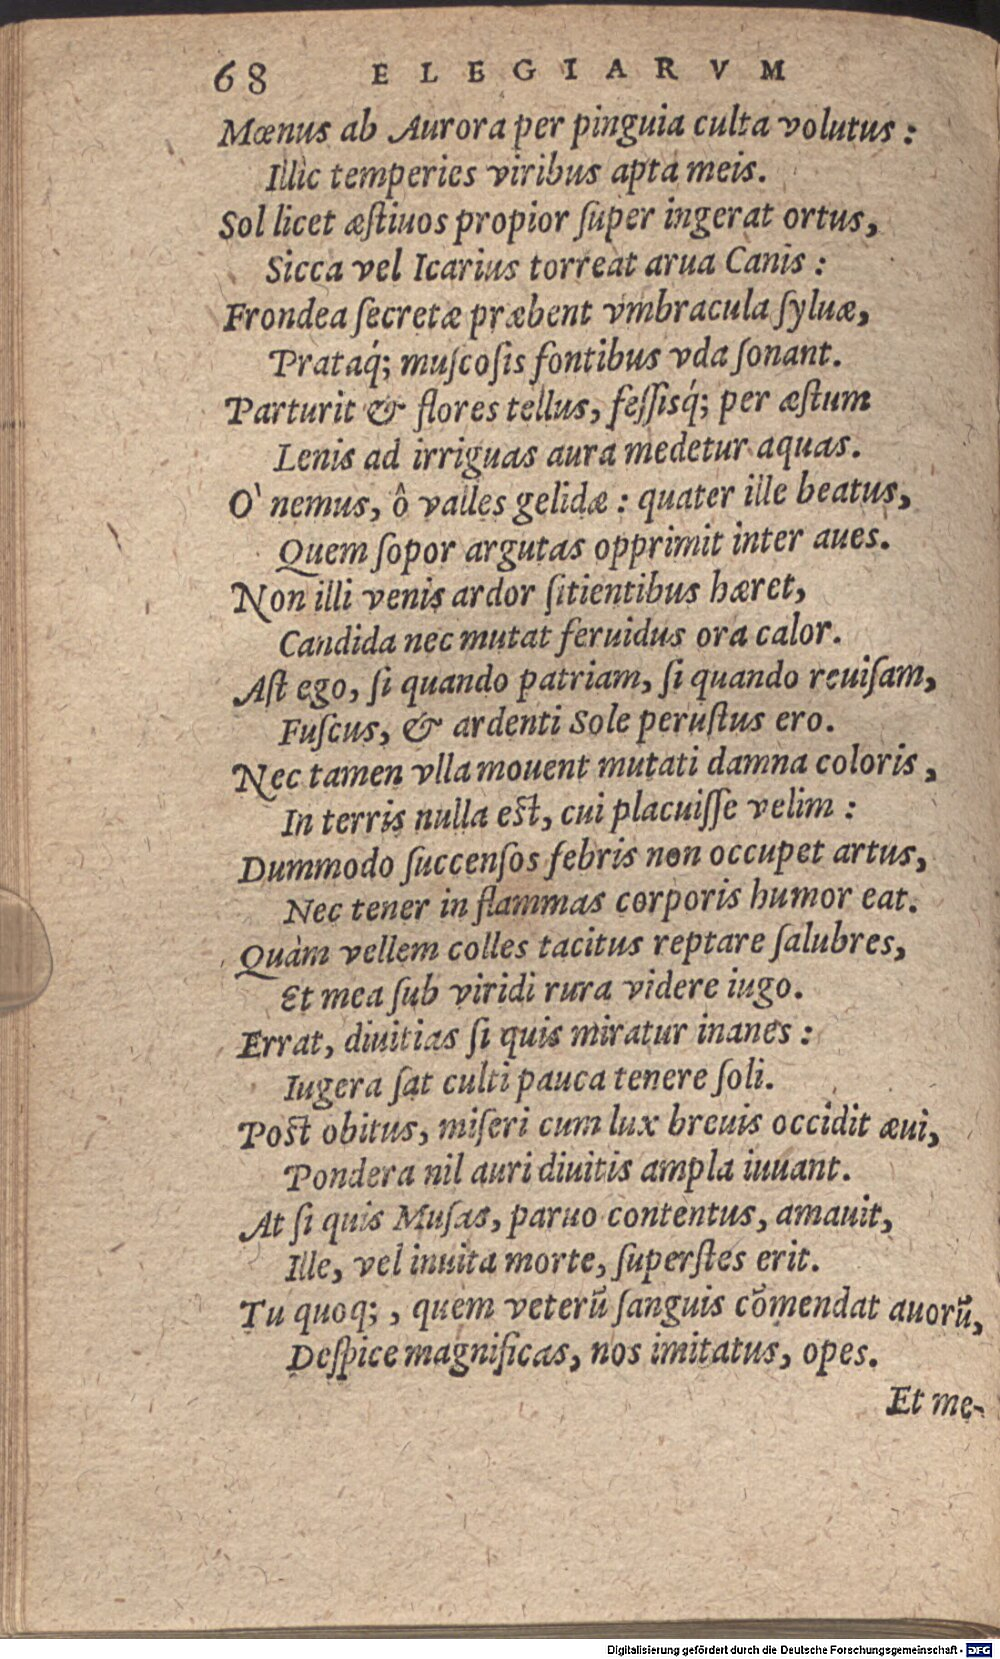 68 ELEGIARVM
Mœnus ab Aurora per pinguia culta volutus :
Illic temperies viribus apta meis.
Sol licet æſtiuos propior ſuper ingerat ortus,
Sicca vel Icarius torreat arua Canis :
Frondea ſecretæ præbent vmbracula ſyluæ,
Prataq́; muſcoſis fontibus vda ſonant.
Parturit & flores tellus, feſſisq́; per æſtum
Lenis ad irriguas aura medetur aquas.
O` nemus, ô valles gelidæ : quater ille beatus,
Quem ſopor argutas opprimit inter aues.
Non illi venis ardor ſitientibus hæret,
Candida nec mutat feruidus ora calor.
Aſt ego, ſi quando patriam, ſi quando reuiſam,
Fuſcus, & ardenti Sole peruſtus ero.
Nec tamen vlla mouent mutati damna coloris ,
In terris nulla eſt, cui placuiſſe velim :
Dummodo ſuccenſos febris non occupet artus,
Nec tener in flammas corporis humor eat.
Quàm vellem colles tacitus reptare ſalubres,
Et mea ſub viridi rura videre iugo.
Errat, diuitias ſi quis miratur inanes :
Iugera ſat culti pauca tenere ſoli.
Poſt obitus, miſeri cum lux breuis occidit æui,
Pondera nil auri diuitis ampla iuuant.
At ſi quis Muſas, paruo contentus, amauit,
Ille, vel inuita morte, ſuperſtes erit.
Tu quoq; , quem veterũ ſanguis cõmendat auorũ,
Deſpice magnificas, nos imitatus, opes.
Et me-
Digitalisierung gefördert durch die Deutsche Forschungsgemeinschaft - DFG